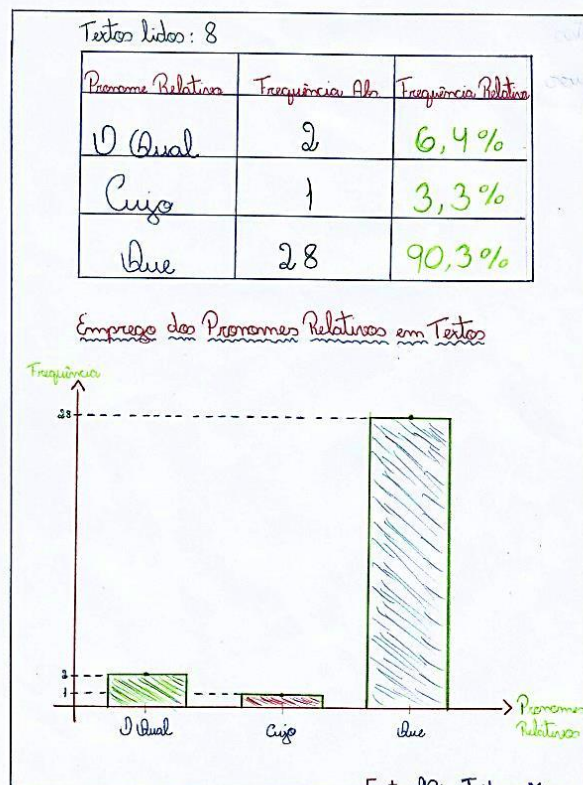 Textos lidos: 8
Pronome Relativo Frequência Abs Frequência Relativa
O Qual 2 6,4%
Cujo 1 3,3%
Que 28 90,3%
Emprego dos Pronomes Relativos em Textos
Frequência
28
2
1
O Qual Cujo Que
Pronomes
Relativos